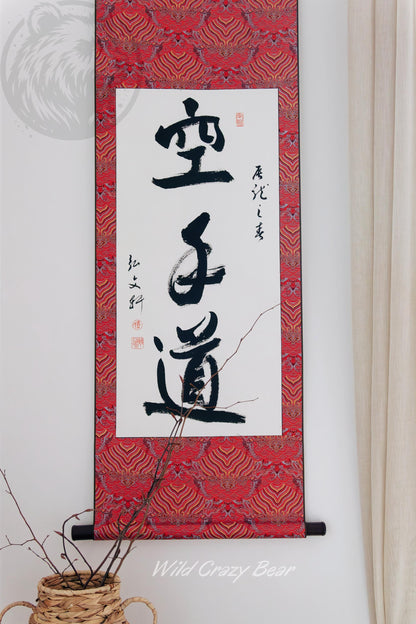 空手道
辰龍之春
弘文軒
Wild Crazy Bear